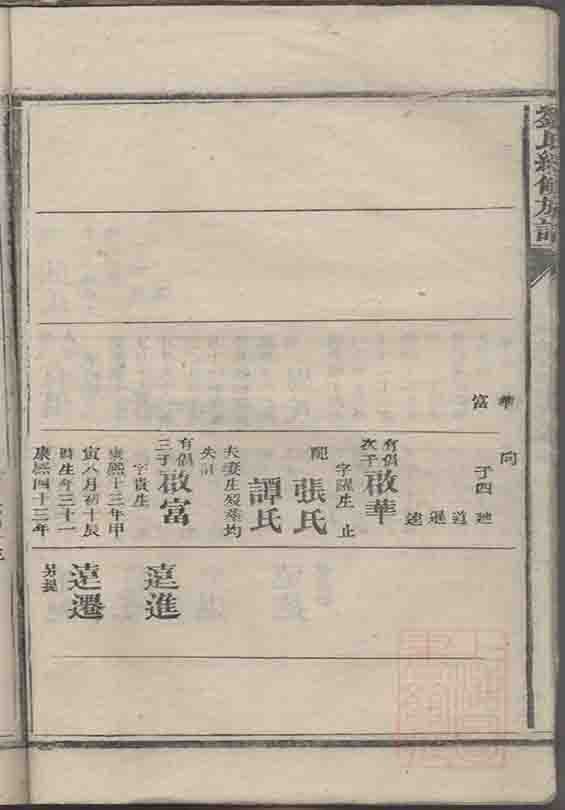 劉氏續修族譜
華
富
同
子四 建
道
運
達
有俱
次子
啟華
字躍生 止
配
張氏
譚氏
夫妻生歿葬均
失詳
有俱
三子
啟富
字貴生
康熙十三年甲
寅八月初十辰
時生年三十一
康熙四十三年
遠進
遠遷
另提